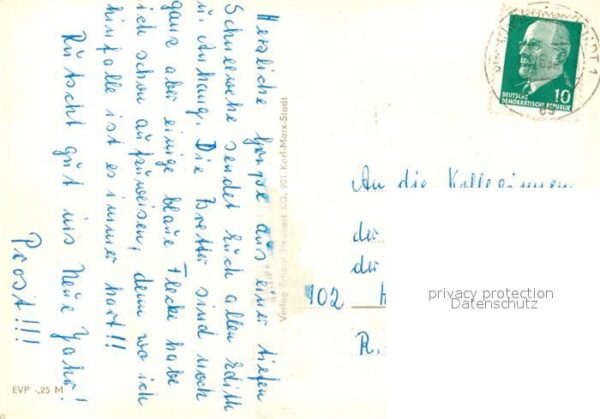 Herzliche Grüße aus einer tiefen
Schneewehe sendet Euch allen Edith
u. Anhang. Die Bretter sind noch
ganz aber einige blaue Flecke habe
ich schon aufzuweisen, denn wo ich
hinfalle ist es immer hart!!
Rutscht gut ins Neue Jahr!
Prosit!!!
EVP -,25 M
Verlag Erhard Neubert KG, 901 Karl-Marx-Stadt
DEUTSCHE
DEMOKRATISCHE REPUBLIK
10
An die Kolleginnen
der
der
102
R.
privacy protection
Datenschutz